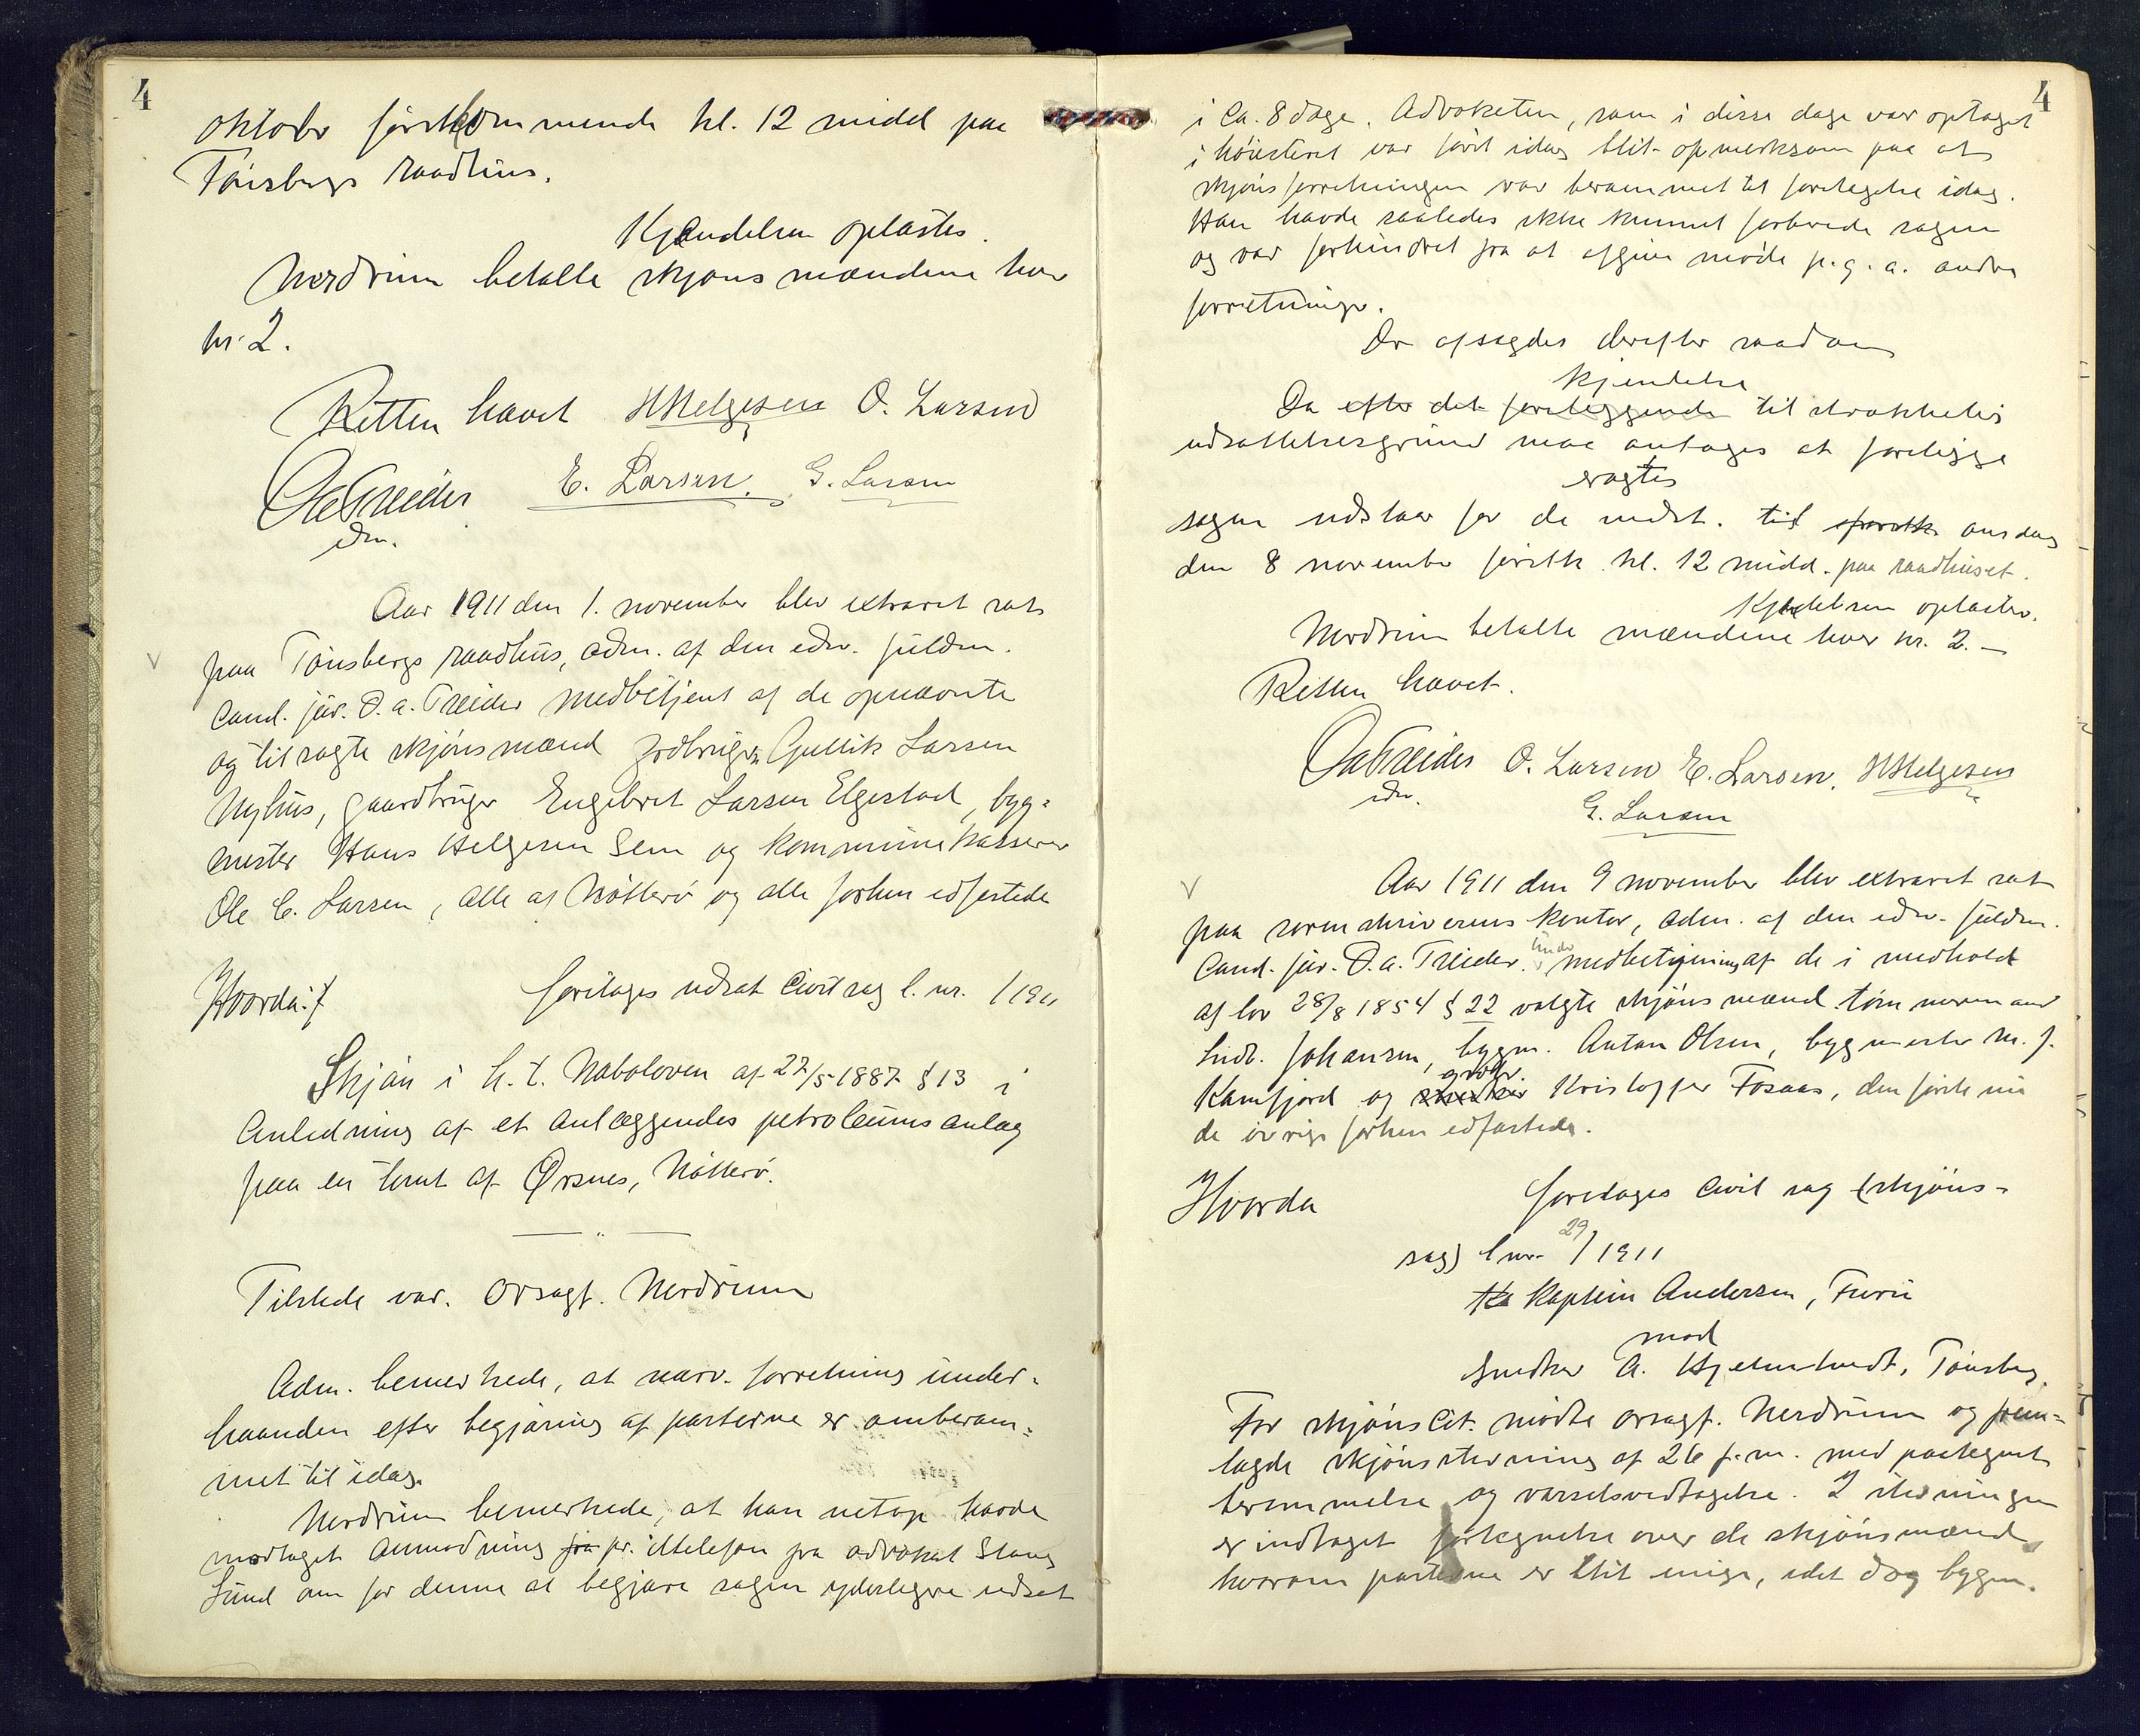 4
oktober förstkommende kl. 12 midd paa
Tönsbergs raadhus.
Kjendelsen oplæstes.
Nerdrum betalte skjønsmændene hver
kr. 2.
Retten hævet HHelgesen O. Larsen
OATreider E. Larsen. G. Larsen
edsv.
Aar 1911 den 1. november blev extraret sat
paa Tönsbergs raadhus, adm. af den edsv. fuldm.
cand. jur. O. A. Treider medbetjent af de opnævnte
og tilsagte skjönsmænd jordbruger Gullik Larsen
Nyhus, gaardbruger Engebret Larsen Elgestad, byg-
mester Hans Helgesen Sem og kommunekasserer
Ole C. Larsen, alle af Nötterö og alle forhen edfestede
Hvorda:/
foretages udsat civil sag l. nr. /1911
Skjön i h. t. Naboloven af 27/5 1887 § 13 i
Anledning af et anlæggendes petroleumsanlæg
paa en tomt af Ørsnes, Nötterö.
Tilstede var. Orsagf. Nerdrum
Adm. bemerkede, at nærv. forretning under-
haanden efter begjæring af parterne er omberam-
met til idag.
Nerdrum bemerkede, at han netop havde
modtaget anmodning fra pr. iltelefon fra advokat Stang
Lund om for denne at begjære sagen yderligere udsat
4
i ca. 8 dage. Advokaten, som i disse dage var optaget
i höiesteret var först idag blit opmerksom paa at
skjönsforretningen var berammet til foretagelse idag.
Han havde saaledes ikke kunnet forberede sagen
og var forhindret fra at afgive möde p. g. a. andre
forretninger.
Der afsagdes derefter saadan
kjendelse
Da efter det foreliggende tilstrækkelig
udsættelsesgrund maa antages at foreligge
eragtes
sagen udstaar for de undst. til onsdag
den 8 november förstk. kl. 12 midd. paa raadhuset.
Kjendelsen oplæstes.
Nerdrum betalte mændene hver kr. 2. —
Retten hævet.
OATreider O. Larsen E. Larsen. HHelgesen
edsv.
G. Larsen
Aar 1911 den 9 november blev extraret sat
paa sorenskriverens kontor, adm. af den edsv. fuldm.
cand. jur. O. A. Treider. under medbetjening af de i medhold
af lov 28/8 1854 § 22 valgte skjönsmænd tömmermand
Ludv. Johansen, bygm. Anton Olsen, bygmester M. J.
Kamfjord og snedker Kristoffer Fosaas, den förste nu
de övrige forhen edfæstede.
Hvorda
foretages civil sag (skjöns-
sag) l nr. 29/1911
Kaptein Andersen, Furu
mod
Snedker A. Hjelmtvedt, Tönsberg.
For skjönscit. mödte orsagf. Nerdrum og frem-
lagde skjönsstevning af 26 f. m. med paategnet
berammelse og varselsvedtagelse. I stevningen
er indtaget fortegnelse over de skjönsmænd
hvorom parterne er blit enige, idet dog bygm.